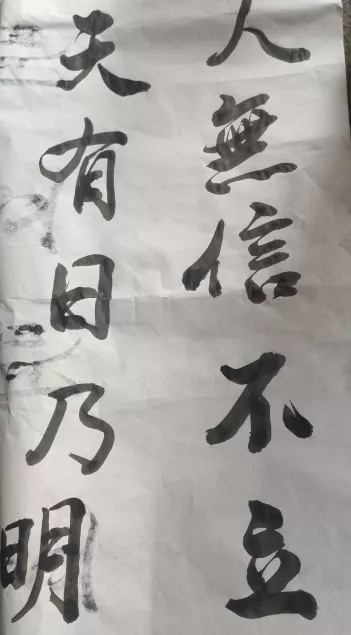 人無信不立
天有日乃明